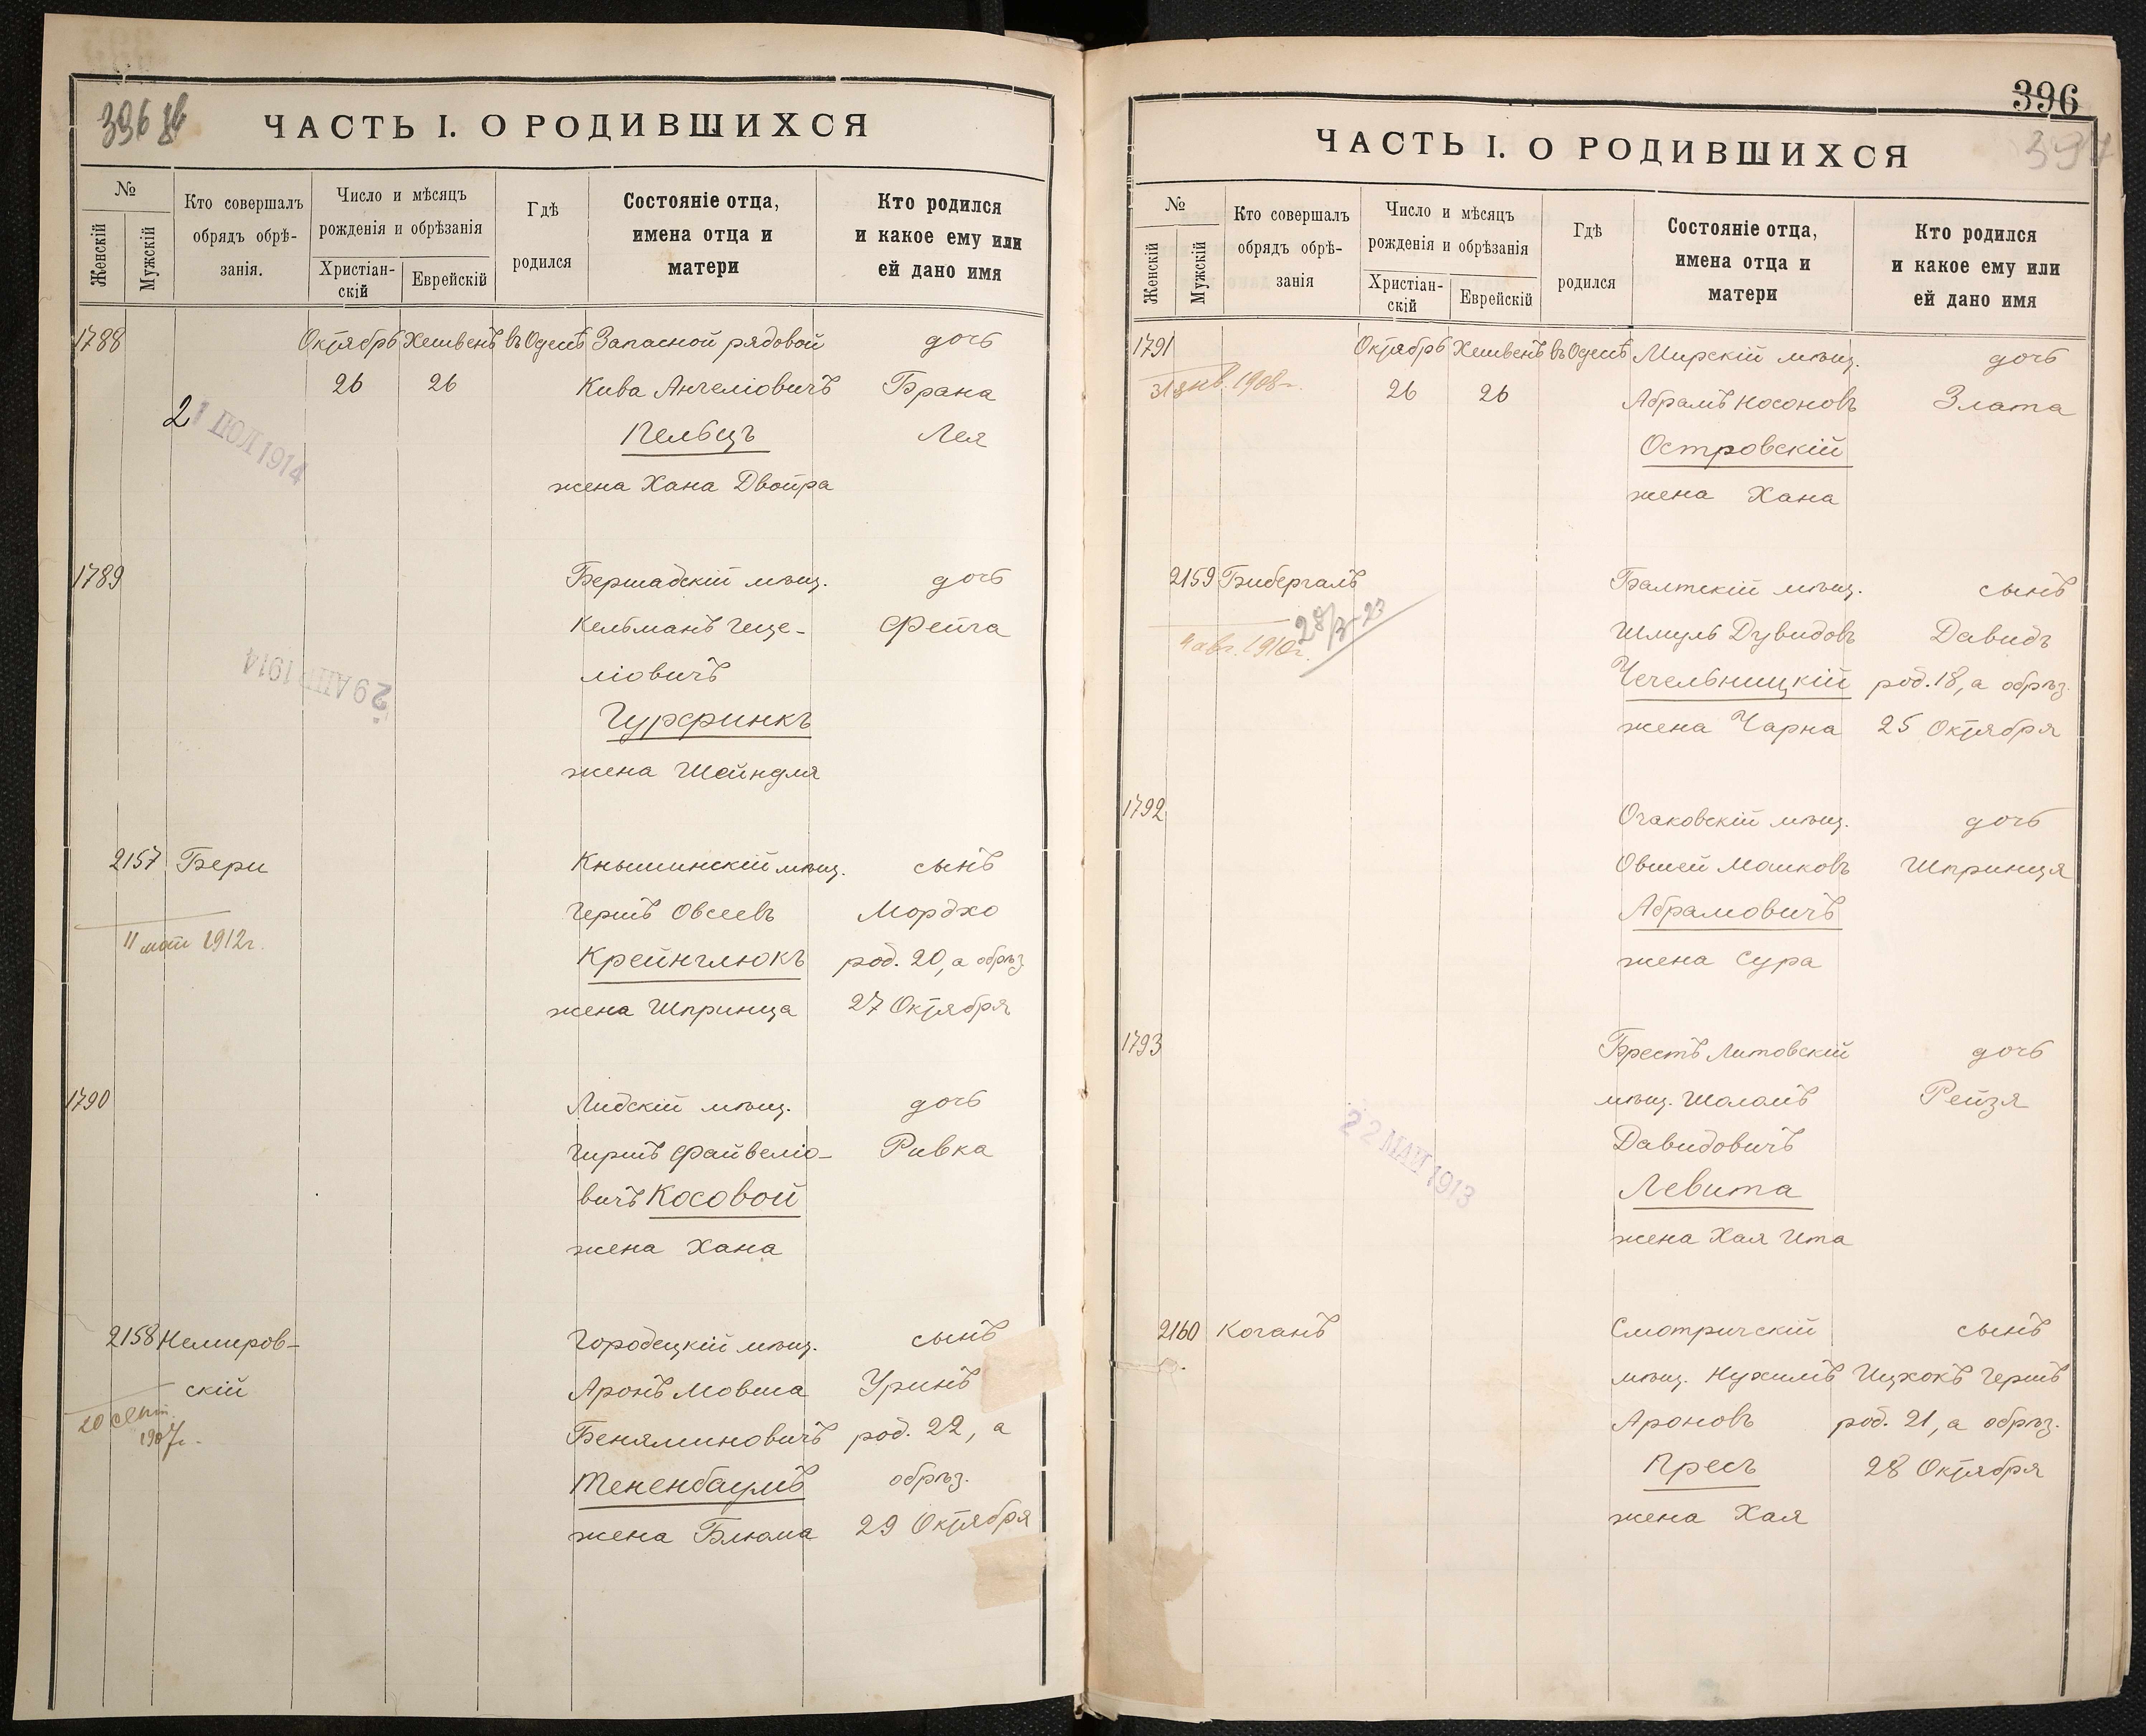 396 об
ЧАСТЬ I. О РОДИВШИХСЯ
№
Женскій
Мужскій
Кто совершалъ
обрядъ обрѣ-
занія.
Число и мѣсяцъ
рожденія и обрѣзанія
Христіан-
скій
Еврейскій
Гдѣ
родился
Состояніе отца,
имена отца и
матери
Кто родился
и какое ему или
ей дано имя
1788 Октябрь Хешвенъ въ Одессѣ Запасной рядовой дочь
26 26 Кива Анчеліовичъ Брана
Пельцъ Лея
21 ІЮЛ 1914
жена Хана Двойра
1789 Бершадскій мѣщ. дочь
Кельманъ Геце- Фейга
ліовичъ
29 АПР 1914
Гурфинкъ
жена Шейндля
2157 Бери Кнышинскій мѣщ. сынъ
Гершъ Овсеевъ Мордхо
11 мая 1912г.
Крейнглюкъ род. 20, а обрѣз.
жена Шпринца 27 Октября
1790 Лидскій мѣщ. дочь
Гиршъ Файвеліо- Ривка
вичъ Косовой
жена Хана
2158 Немиров- Городецкій мѣщ. сынъ
скій Аронъ Мовша Уринъ
20 сент.
1907г.
Беняминовичъ род. 22, а
Тененбаумъ обрѣз.
жена Блюма 29 Октября
396
397
ЧАСТЬ I. О РОДИВШИХСЯ
№
Женскій
Мужскій
Кто совершалъ
обрядъ обрѣ-
занія
Число и мѣсяцъ
рожденія и обрѣзанія
Христіан-
скій
Еврейскій
Гдѣ
родился
Состояніе отца,
имена отца и
матери
Кто родился
и какое ему или
ей дано имя
1791 Октябрь Хешвенъ въ Одессѣ Мирскій мѣщ. дочь
31 янв. 1908г. 26 26 Абрамъ Носоновъ Злата
Островскій
жена Хана
2159 Бибергалъ Балтскій мѣщ. сынъ
Шмуль Дувидовъ Давидъ
4 авг. 1910г.
Чечельницкій род. 18, а обрѣз.
жена Чарна 25 Октября
1792 Очаковскій мѣщ. дочь
Овшей Мошковъ Шпринця
Абрамовичъ
жена Сура
1793 Брестъ Литовскій дочь
мѣщ. Шоломъ Рейзя
Давидовичъ
22 МАЙ 1913
Левита
жена Хая Ита
2160 Коганъ Смотричскій сынъ
мѣщ. Нухимъ Ицхокъ Гершъ
Ароновъ род. 21, а обрѣз.
Пресъ 28 Октября
жена Хая